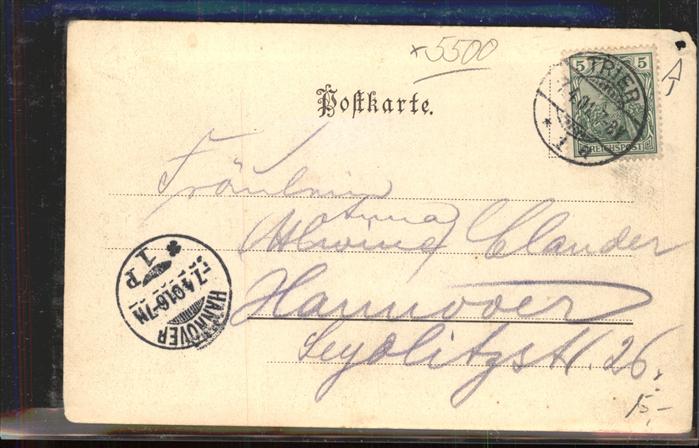 *5500
5 5
REICHSPOST
TRIER
1
Postkarte.
Fräulein
Anna
Alwine Clander
Hannover
Seydlitzstr. 26.
15,-
HANNOVER
7.4.01.6-7N
1 P